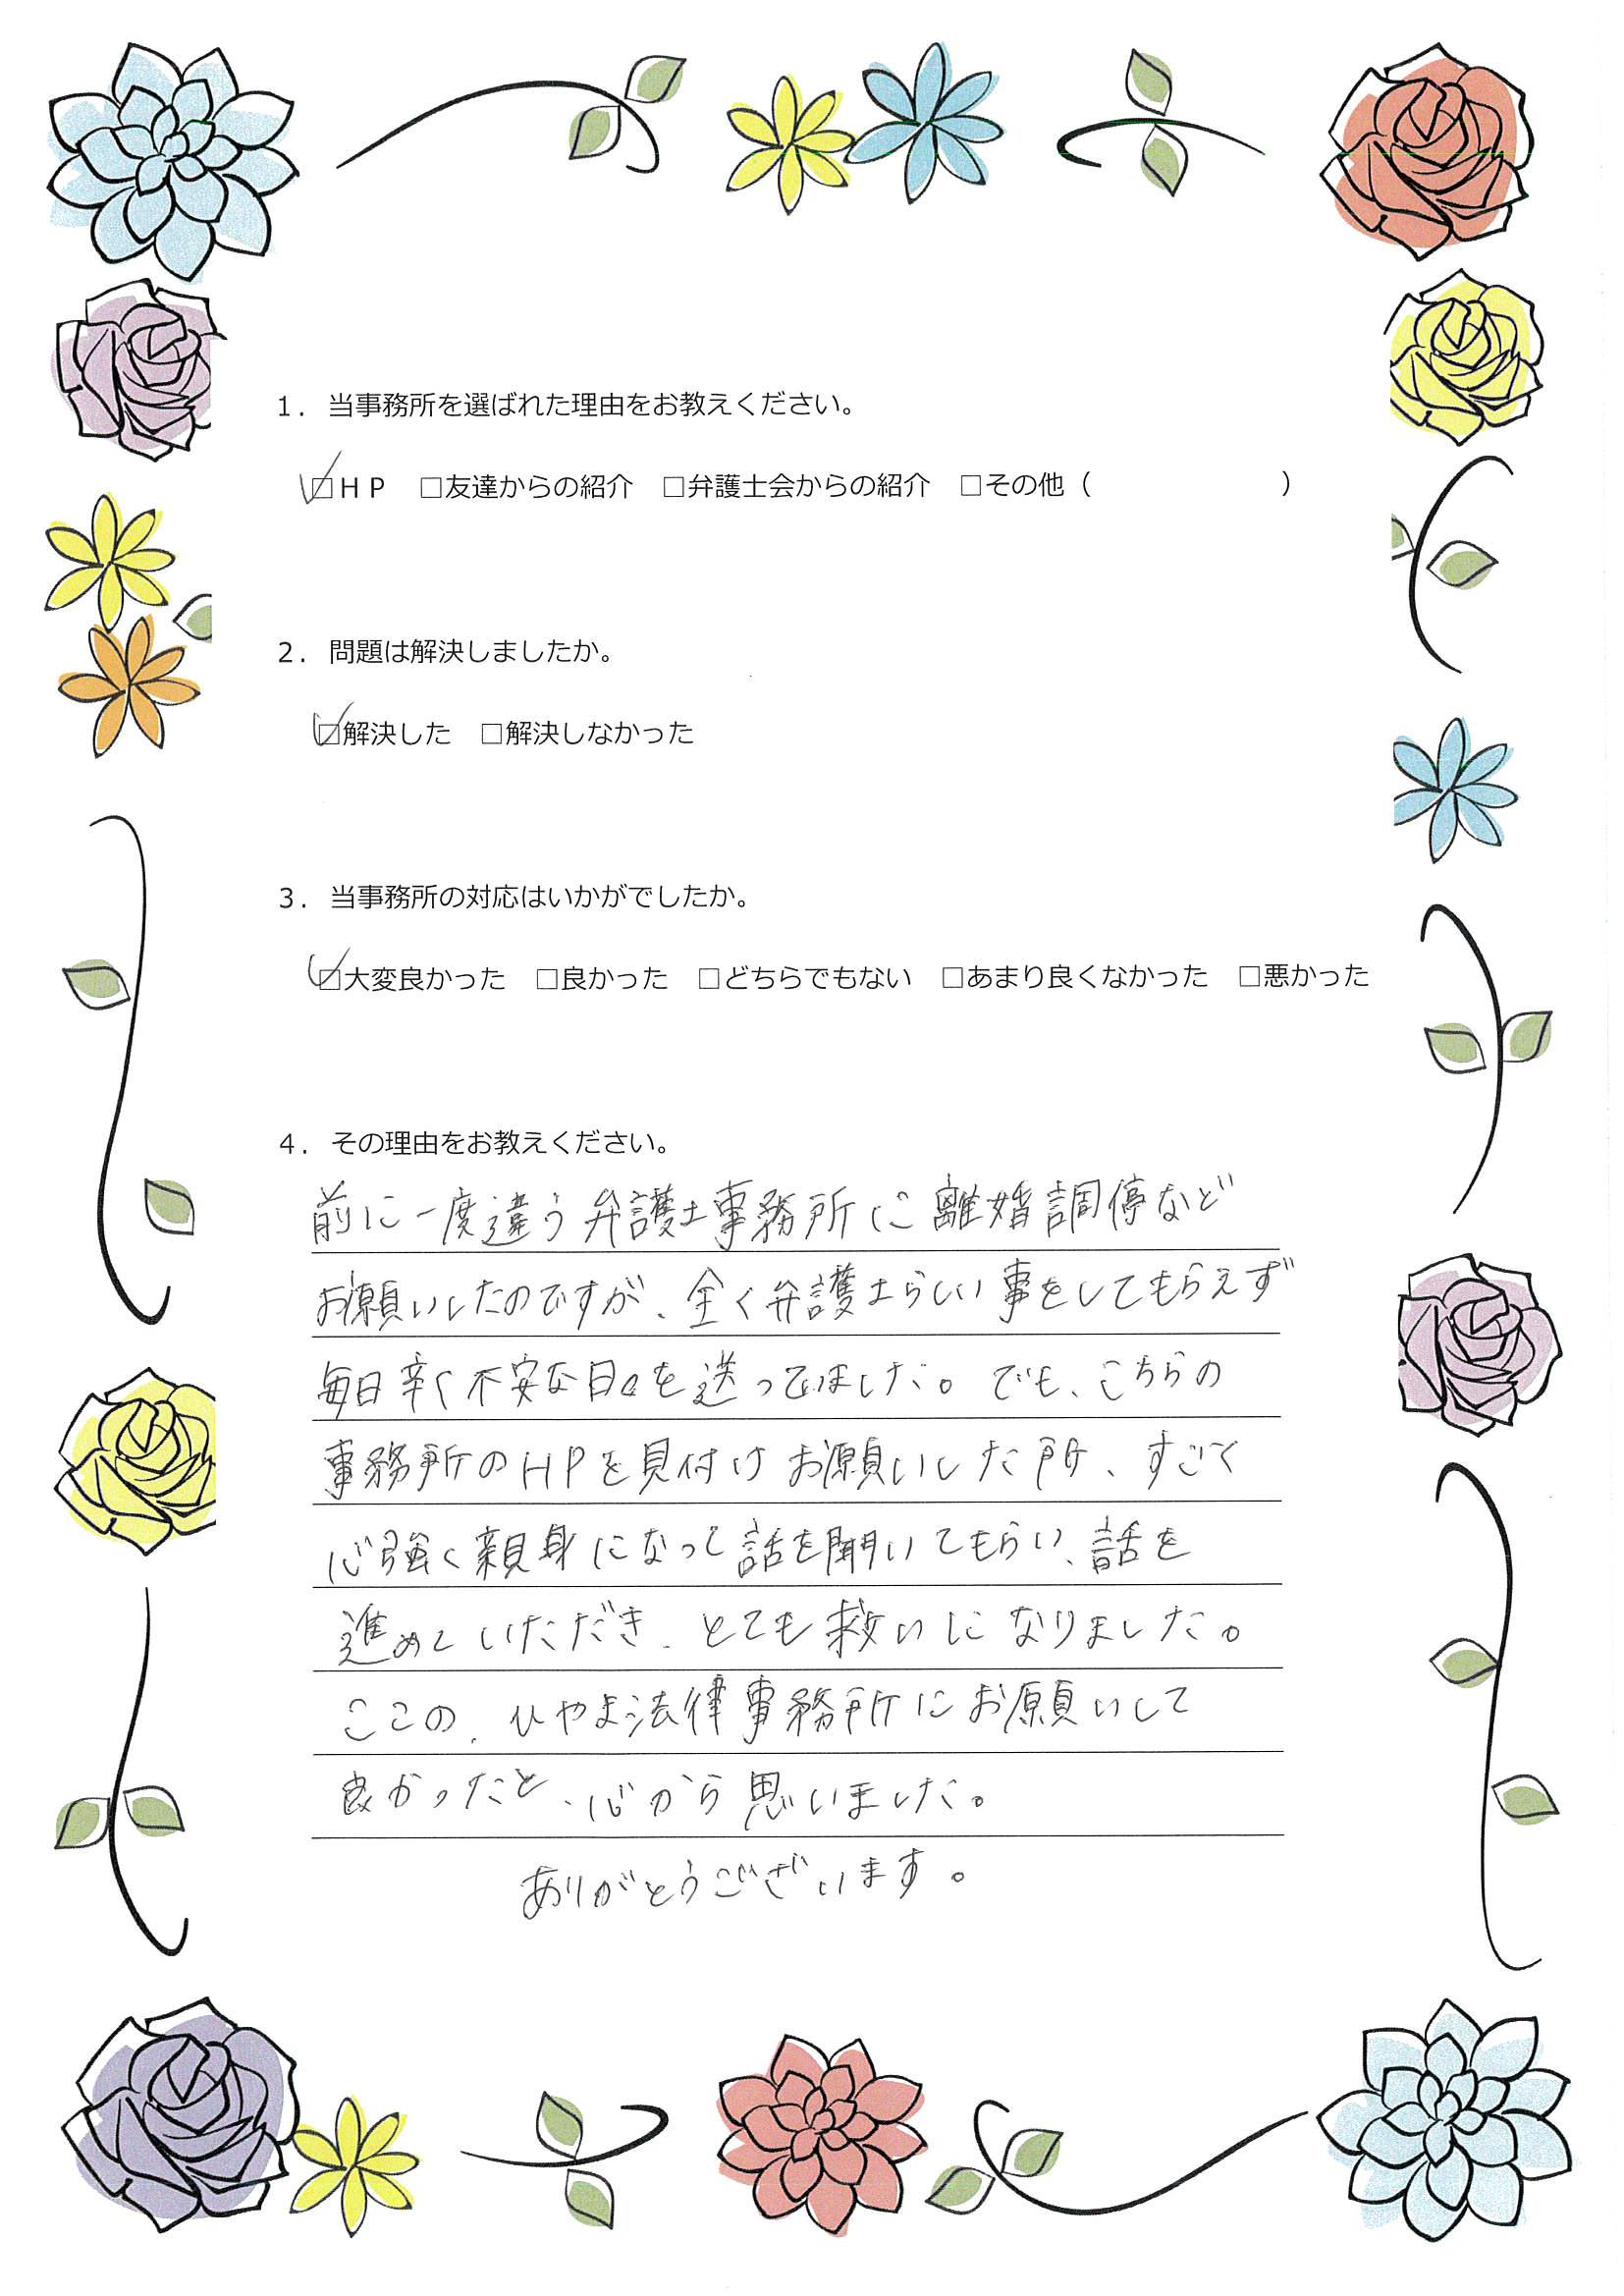 １．当事務所を選ばれた理由をお教えください。
☑ＨＰ　□友達からの紹介　□弁護士会からの紹介　□その他（　　　　　　　）
２．問題は解決しましたか。
☑解決した　□解決しなかった
３．当事務所の対応はいかがでしたか。
☑大変良かった　□良かった　□どちらでもない　□あまり良くなかった　□悪かった
４．その理由をお教えください。
前に一度違う弁護士事務所に離婚調停など
お願いしたのですが、全く弁護士らしい事をしてもらえず
毎日辛く不安な日々を送ってました。でも、こちらの
事務所のHPを見付けお願いした所、すごく
心強く親身になって話を聞いてもらい、話を
進めていただき、とても救いになりました。
ここの、ひやま法律事務所にお願いして
良かったと、心から思いました。
ありがとうございます。